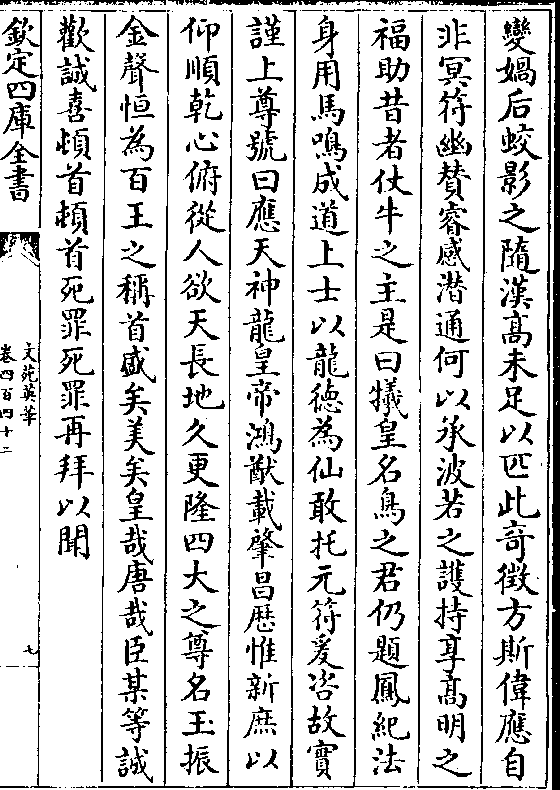 變媧后蛟影之隨漢髙未足以匹此竒徴方斯偉應自
非冥符幽賛睿感潜通何以承波若之䕶持享髙明之
福助昔者仗牛之主是曰犧皇名鳥之君仍題鳳紀法
身用馬鳴成道上士以龍徳為仙敢托元符爰咨故實
謹上尊號曰應天神龍皇帝鴻猷載肇昌厯惟新庶以
仰順乾心俯從人欲天長地久更隆四大之尊名玉振
金聲恒為百王之稱首盛矣美矣皇哉唐哉臣某等誠
歡誠喜頓首頓首死罪死罪再拜以聞
欽定四庫全書
文苑英華
卷四百四十二
七